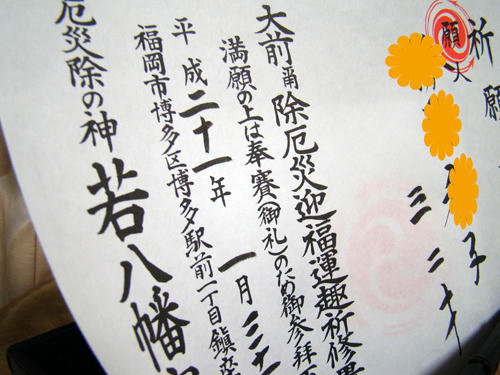 祈願
願
子 三二才
大前甫 除厄災迎福運趣祈修
満願の上は奉賽(御礼)のため御参拝
平成二十一年 一月三十
福岡市博多区博多駅前一丁目鎮
厄災除の神 若八幡